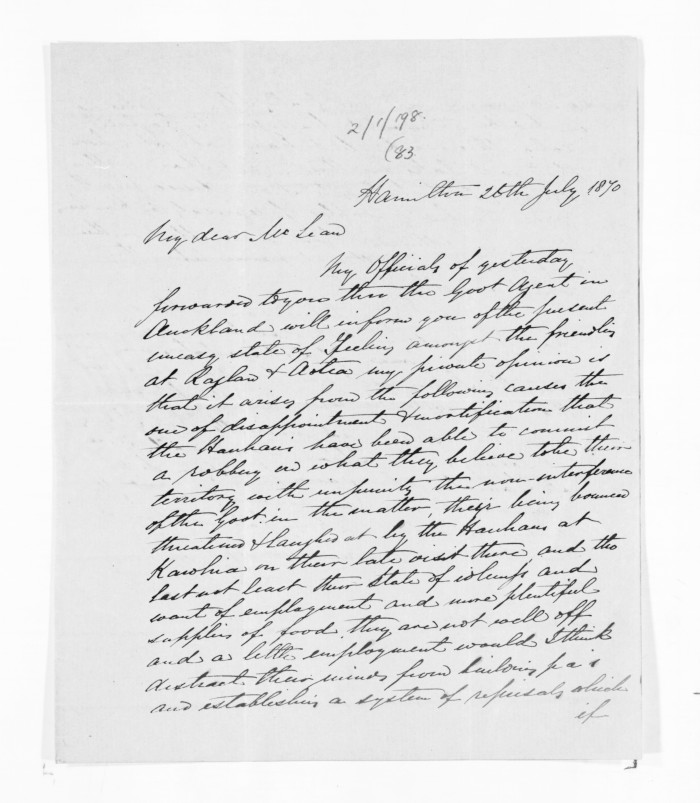 2/1/198.
(83
Hamilton 26th July 1870
My dear McLean
My Officials of yesterday
forwarded to you thro the Govt Agent in
Auckland will inform you of the present
uneasy state of feeling amongst the friendlies
at Raglan & Aotea my private opinion is
that it arises from the following causes the
one of disappointment & mortification that
the Hauhaus have been able to commit
a robbery in what they believe to be their
territory with impunity the non-interference
of the Govt. in the matter, their being bounced
threatened & laughed at by the Hauhaus at
Kawhia on their late visit there and tho
last not least their state of idleness and
want of employment and more plentiful
supplies of food. they are not well off
and a little employment would I think
distract their minds from building pa's
and establishing a system of reprisals which
if